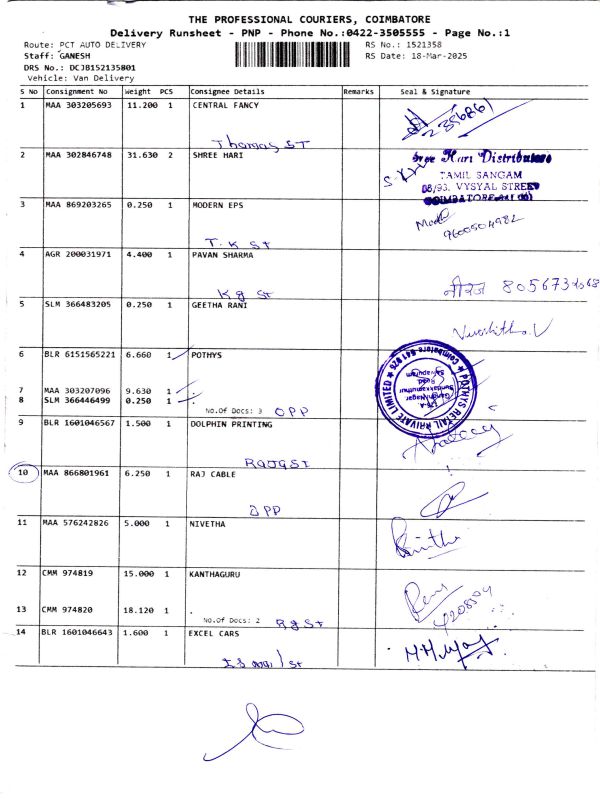 THE PROFESSIONAL COURIERS, COIMBATORE
Delivery Runsheet - PNP - Phone No.:0422-3505555 - Page No.:1
Route: PCT AUTO DELIVERY RS No.: 1521358
Staff: GANESH RS Date: 18-Mar-2025
DRS No.: DCJB152135801
Vehicle: Van Delivery
S No Consignment No Weight PCS Consignee Details Remarks Seal & Signature
1 MAA 303205693 11.200 1 CENTRAL FANCY
Thomas ST
2 MAA 302846748 31.630 2 SHREE HARI
Sree Hari Distributors
TAMIL SANGAM
08/93, VYSYAL STREET
COIMBATORE
3 MAA 869203265 0.250 1 MODERN EPS
9600504982
T.K St
4 AGR 200031971 4.400 1 PAVAN SHARMA
Kg St
नीरज
5 SLM 366483205 0.250 1 GEETHA RANI
6 BLR 6151565221 6.660 1 POTHYS
POTHYS RETAIL PRIVATE LIMITED
Coimbatore 641 026
7 MAA 303207096 9.630 1
8 SLM 366446499 0.250 1 .
No.Of Docs: 3 OPP
9 BLR 1601046567 1.500 1 DOLPHIN PRINTING
10 MAA 866801961 6.250 1 RAJ CABLE
OPP
11 MAA 576242826 5.000 1 NIVETHA
12 CMM 974819 15.000 1 KANTHAGURU
13 CMM 974820 18.120 1 .
No.Of Docs: 2 Rg St
14 BLR 1601046643 1.600 1 EXCEL CARS